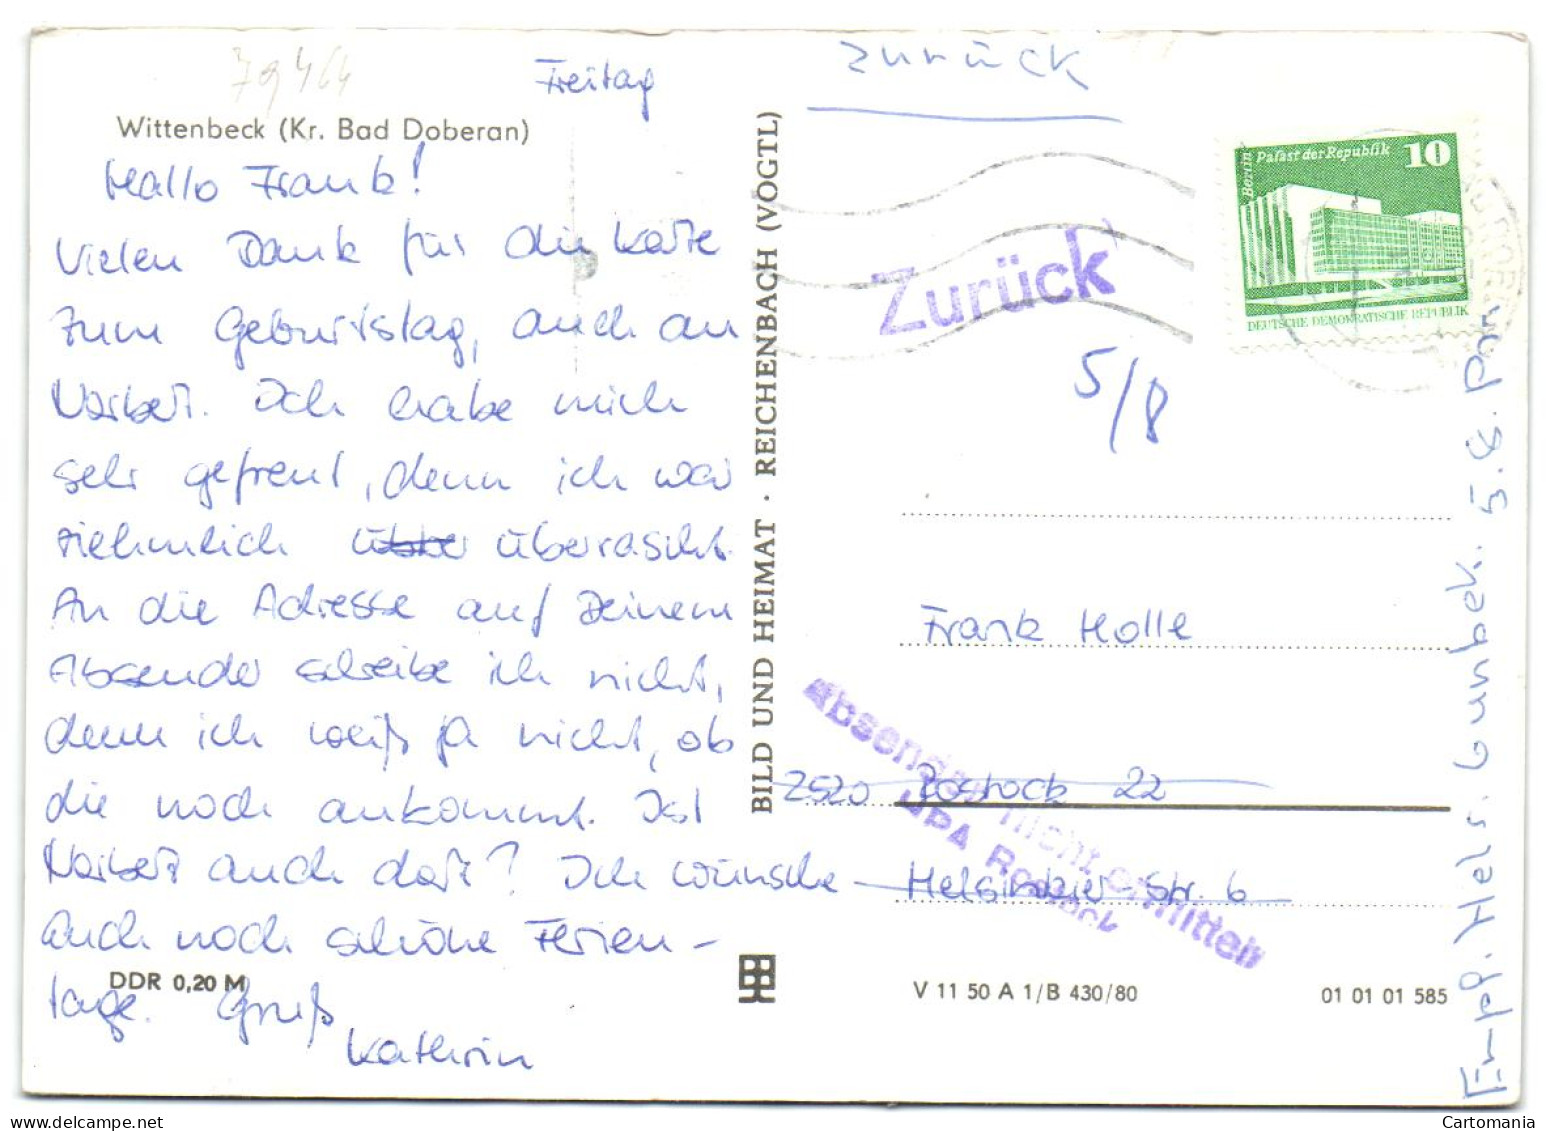 79464
Freitag
Wittenbeck (Kr. Bad Doberan)
Hallo Frank!
Vielen Dank für die Karte
zum Geburtstag, auch an
Norbert. Ich habe mich
sehr gefreut, denn ich war
ziehmlich über überrascht.
An die Adresse auf Deinem
Absender schreibe ich nicht,
denn ich weiß ja nicht, ob
die noch ankommt. Ist
Norbert auch dort? Ich wünsche
auch noch schöne Ferien-
tage. Gruß
Kathrin
DDR 0,20 M
BILD UND HEIMAT · REICHENBACH (VOGTL)
zurück
Zurück
5/8
Berlin Palast der Republik 10
DEUTSCHE DEMOKRATISCHE REPUBLIK
Frank Holle
2520 Rostock 22
Helsinkier Str. 6
Absender nicht ermittelt
HPA Rostock
Empf. Hels. 6 unbek. 5.8.
V 11 50 A 1/B 430/80
01 01 01 585
www.delcampe.net
Cartomania